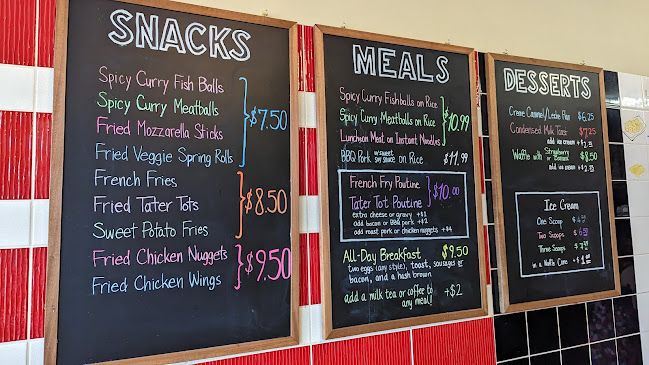 SNACKS
Spicy Curry Fish Balls
Spicy Curry Meatballs
Fried Mozzarella Sticks
Fried Veggie Spring Rolls
$7.50
French Fries
Fried Tater Tots
Sweet Potato Fries
$8.50
Fried Chicken Nuggets
Fried Chicken Wings
$9.50
MEALS
Spicy Curry Fishballs on Rice
Spicy Curry Meatballs on Rice
Luncheon Meat on Instant Noodles
$10.99
BBQ Pork w/ sweet soy sauce on Rice $11.99
French Fry Poutine
Tater Tot Poutine
$10.00
extra cheese or gravy +$1
add bacon or BBQ pork +$2
add roast pork or chicken nuggets +$4
All-Day Breakfast $9.50
two eggs (any style), toast, sausages or
bacon, and a hash brown
add a milk tea or coffee to
any meal! +$2
DESSERTS
Creme Caramel/Leche Flan $6.25
Condensed Milk Toast $7.25
add ice cream
Waffle with Strawberry or Banana $8.50
add ice cream
Ice Cream
One Scoop
Two Scoops
Three Scoops
in a Waffle Cone +$1